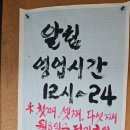 알림
영업시간
12시~24
* 첫째, 셋째, 다섯째